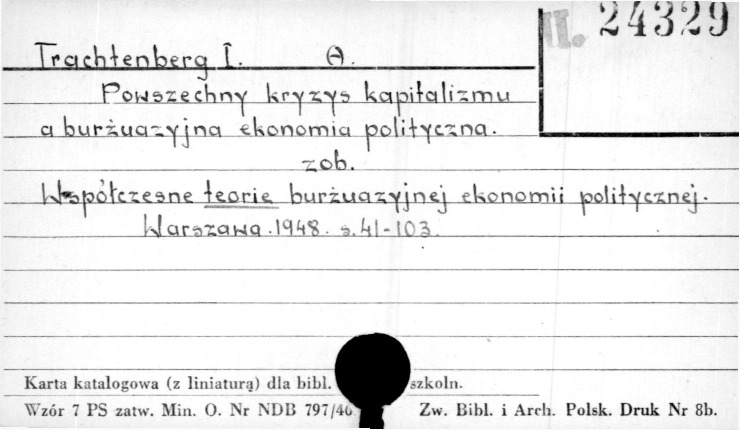 II. 24329
Trachtenberg I. A.
Powszechny kryzys kapitalizmu
a burżuazyjna ekonomia polityczna.
zob.
Współczesne teorie burżuazyjnej ekonomii politycznej.
Warszawa.1948. s.41-103.
Karta katalogowa (z liniaturą) dla bibl. szkoln.
Wzór 7 PS zatw. Min. O. Nr NDB 797/46 Zw. Bibl. i Arch. Polsk. Druk Nr 8b.